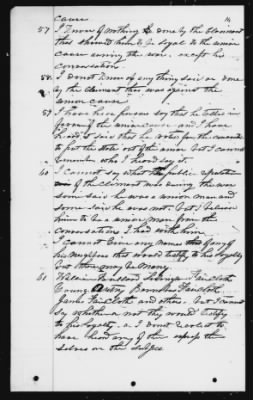 cause
57 I know of nothing done by the claimant
that showed him to be loyal to the union
cause during the war, except his
conversation
58. I do not know of any thing said or done
by the claimant that was against the
union cause
59 I have heard persons say that he talked in
favor of the union cause and I have
heard it said that he voted for the
to put the state out of the union but I cannot
remember who I heard say it.
60 I cannot say what the public reputation
of the claimant was during the war
some said he was a union man and
some said he was not. But I believe
him to be a union man from the
conversations I had with him
I cannot give any names of any of
his neighbors that would testify to his loyalty
but there may be many
61 Faircloth
Young Barnabas Faircloth
James Faircloth and others, but I cannot
say whether or not they would testify
to his loyalty, as I do not to
have heard any of them express them
selves on the subject